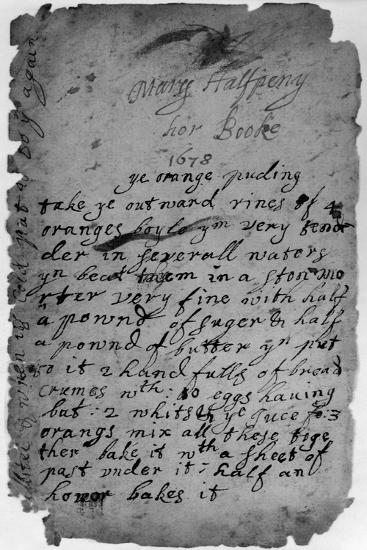 Mary Halfpeny
hor Booke
1678
ye orange puding
take ye outward rines of 4
oranges boyle ym very tend
der in severall waters
yn beat them in a ston mo
rter very fine with half
a pownd of suger & half
a pownd of butter yn put
to it 2 hand fulls of bread
crumes wth: 10 eggs having
but: 2 whits ye Juce of: 3
orangs mix all these toge
ther bake it wth a sheet of
past vnder it: half an
howor bakes it
when it boy again